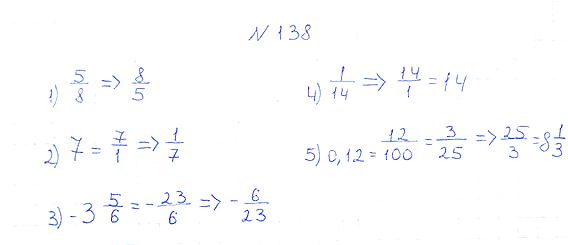 N 138
1) 5/8 => 8/5
2) 7 = 7/1 => 1/7
3) -3 5/6 = -23/6 => -6/23
4) 1/14 => 14/1 = 14
5) 0,12 = 12/100 = 3/25 => 25/3 = 8 1/3